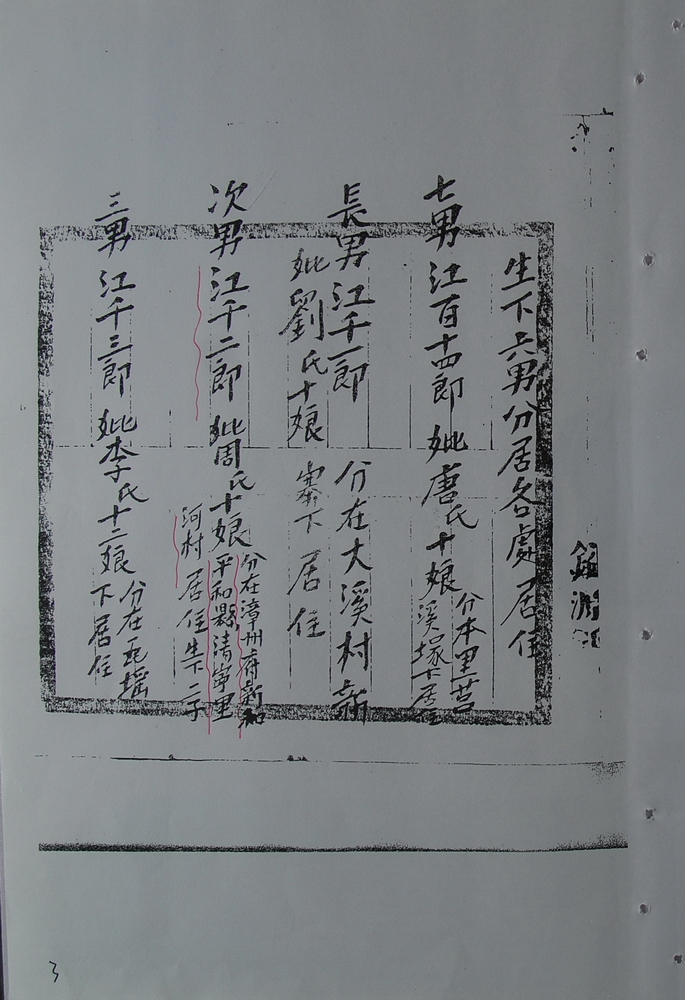 生下六男分居各處居住
七男江百十四郎妣唐氏十娘分本里苦
溪塚下居住
長男江千一郎分在大溪村新
妣劉氏十娘寨下居住
次男江千二郎妣周氏十娘分在漳州府新和
平和縣清寧里
河村居住生下二子
三男江千三郎妣李氏十二娘分在瓦塭
下居住
3